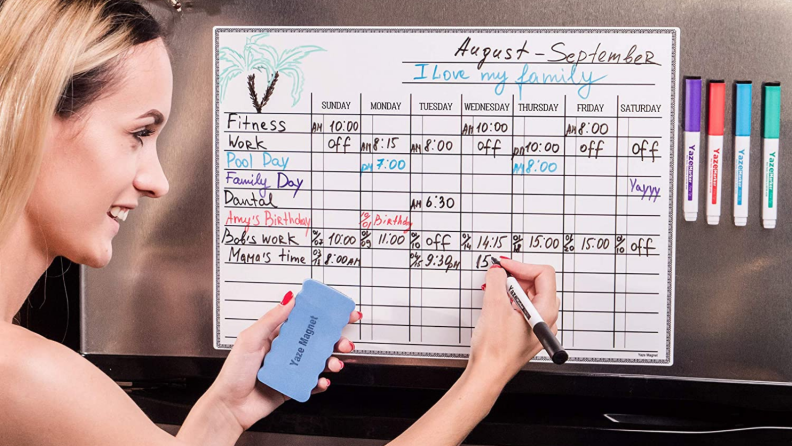 August - September
I love my family
SUNDAY MONDAY TUESDAY WEDNESDAY THURSDAY FRIDAY SATURDAY
Fitness AM 10:00 AM 10:00 AM 8:00
Work off AM 8:15 AM 8:00 off PM 10:00 off off
Pool Day PM 7:00 PM 8:00
Family Day Yayyy
Dantal AM 6:30
Amy's Birthday Birthday
Bob's work 10:00 11:00 off 14:15 15:00 15:00 off
Mama's time 8:00AM 9:30PM 15
Yaze Magnet
Yaze Magnet
Yaze
Yaze
Yaze
Yaze
Yaze Magnet